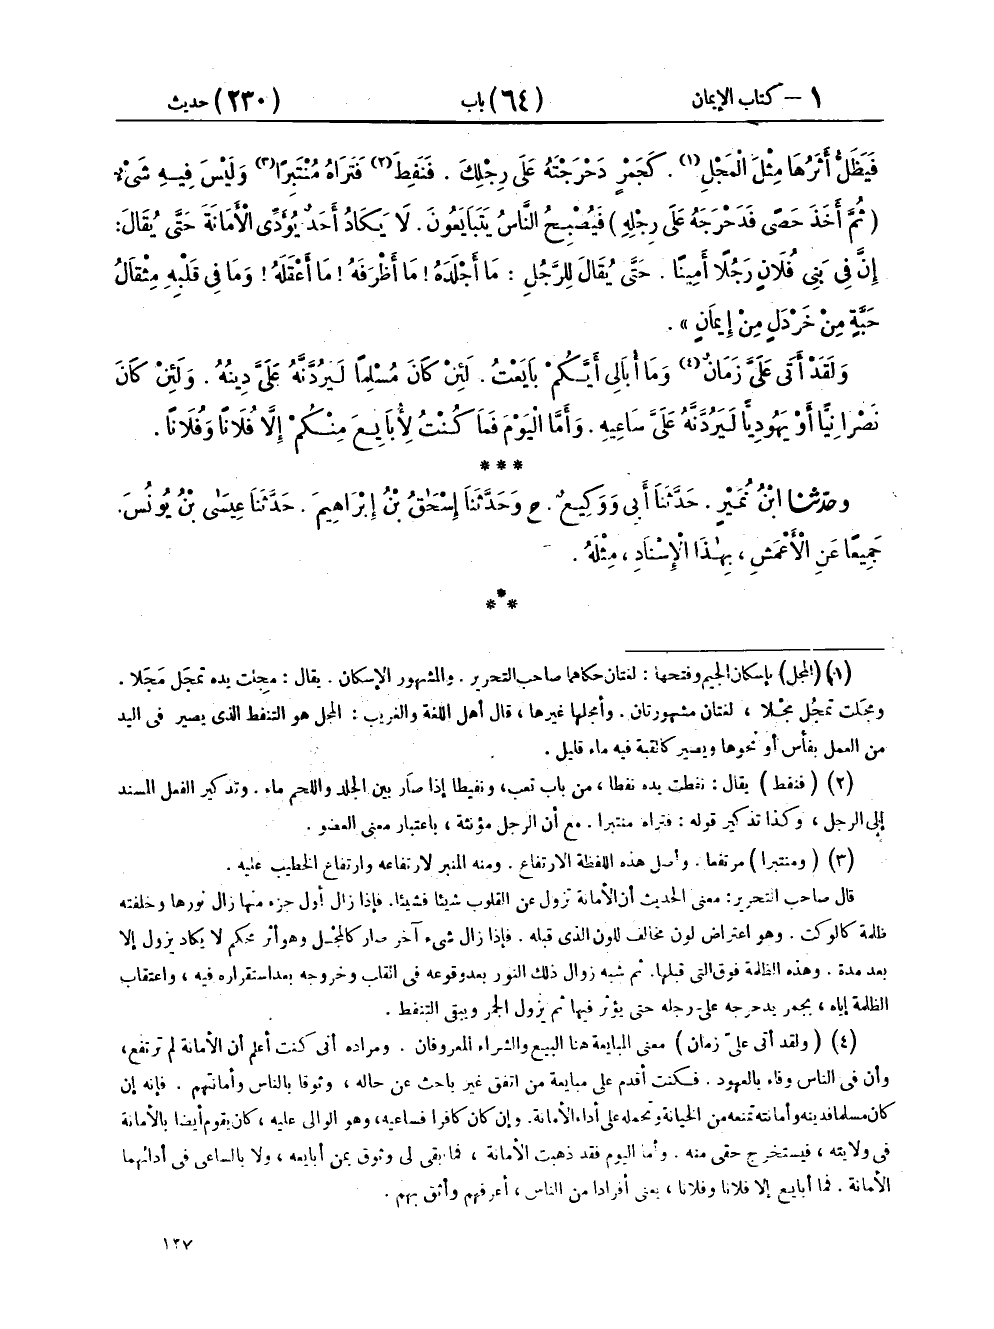 ١ – كتاب الإيمان (٦٤) باب (٢٣٠) حديث
فَيَظَلُّ أَثَرُهَا مِثْلَ الْمَجْلِ(١) . كَجَمْرٍ دَحْرَجْتَهُ عَلَى رِجْلِكَ . فَنَفِطَ(٢) فَتَرَاهُ مُنْتَبِرًا(٣) وَلَيْسَ فِيهِ شَىْءٌ
( ثُمَّ أَخَذَ حَصًى فَدَحْرَجَهُ عَلَى رِجْلِهِ ) فَيُصْبِحُ النَّاسُ يَتَبَايَعُونَ . لَا يَكَادُ أَحَدٌ يُؤَدِّى الْأَمَانَةَ حَتَّى يُقَالَ:
إِنَّ فِى بَنِى فُلَانٍ رَجُلًا أَمِينًا . حَتَّى يُقَالَ لِلرَّجُلِ : مَا أَجْلَدَهُ ! مَا أَظْرَفَهُ ! مَا أَعْقَلَهُ ! وَمَا فِى قَلْبِهِ مِثْقَالُ
حَبَّةٍ مِنْ خَرْدَلٍ مِنْ إِيمَانٍ » .
وَلَقَدْ أَتَى عَلَىَّ زَمَانٌ(٤) وَمَا أُبَالِى أَيَّكُمْ بَايَعْتُ . لَئِنْ كَانَ مُسْلِمًا لَيَرُدَّنَّهُ عَلَىَّ دِينُهُ . وَلَئِنْ كَانَ
نَصْرَانِيًّا أَوْ يَهُودِيًّا لَيَرُدَّنَّهُ عَلَىَّ سَاعِيهِ . وَأَمَّا الْيَوْمَ فَمَا كُنْتُ لِأُبَايِعَ مِنْكُمْ إِلَّا فُلَانًا وَفُلَانًا .
***
وحدّثنا ابْنُ نُمَيْرٍ . حَدَّثَنَا أَبِى وَوَكِيعٌ . ح وَحَدَّثَنَا إِسْحَٰقُ بْنُ إِبْرَاهِيمَ . حَدَّثَنَا عِيسَى بْنُ يُونُسَ .
جَمِيعًا عَنِ الْأَعْمَشِ ، بِهَٰذَا الْإِسْنَادِ ، مِثْلَهُ .
***
(١) (المجل) بإسكان الجيم وفتحها : لغتان حكاهما صاحب التحرير . والمشهور الإسكان . يقال : مجِلت يده تمجَل مَجَلا .
ومجَلت تمجُل مجْلا ، لغتان مشهورتان . وأمجلها غيرها ، قال أهل اللغة والغريب : المجل هو التنفط الذى يصير فى اليد
من العمل بفأس أو نحوها ويصير كالقبة فيه ماء قليل .
(٢) ( فنفط ) يقال : نفطت يده نفطا ، من باب تعب، ونفيطا إذا صار بين الجلد واللحم ماء . وتذكير الفعل المسند
إلى الرجل ، وكذا تذكير قوله : فتراه منتبرا . مع أن الرجل مؤنثة ، باعتبار معنى العضو .
(٣) ( ومنتبرا ) مرتفعا . وأصل هذه اللفظة الارتفاع . ومنه المنبر لارتفاعه وارتفاع الخطيب عليه .
قال صاحب التحرير: معنى الحديث أن الأمانة تزول عن القلوب شيئا فشيئا. فإذا زال أول جزء منها زال نورها وخلفته
ظلمة كالوكت . وهو اعتراض لون مخالف للون الذى قبله . فإذا زال شىء آخر صار كالمجل وهو أثر محكم لا يكاد يزول إلا
بعد مدة . وهذه الظلمة فوق التى قبلها. ثم شبه زوال ذلك النور بعد وقوعه فى القلب وخروجه بعد استقراره فيه ، واعتقاب
الظلمة إياه ، بجمر يدحرجه على رجله حتى يؤثر فيها ثم يزول الجمر ويبقى التنفط .
(٤) ( ولقد أتى علىّ زمان ) معنى المبايعة هنا البيع والشراء المعروفان . ومراده أنى كنت أعلم أن الأمانة لم ترتفع،
وأن فى الناس وفاء بالعهود . فكنت أقدم على مبايعة من اتفق غير باحث عن حاله ، وثوقا بالناس وأمانتهم . فإنه إن
كان مسلما فدينه وأمانته تمنعه من الخيانة وتحمله على أداء الأمانة. وإن كان كافرا فساعيه، وهو الوالى عليه ، كان يقوم أيضا بالأمانة
فى ولايته ، فيستخرج حقى منه . وأما اليوم فقد ذهبت الأمانة ، فما بقى لى وثوق بمن أبايعه ، ولا بالساعى فى أدائهما
الأمانة . فما أبايع إلا فلانا وفلانا ، يعنى أفرادا من الناس ، أعرفهم وأثق بهم .
١٢٧